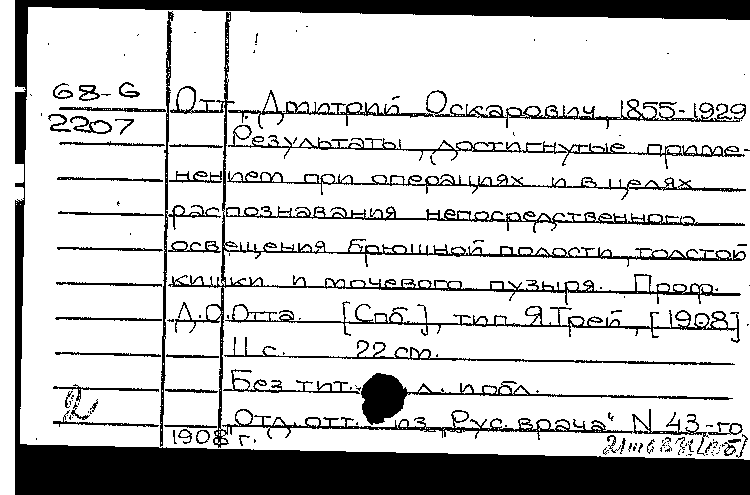 68-6
Отт, Дмитрий Оскарович, 1855-1929
2207
Результаты, достигнутые приме-
нением при операциях и в целях
распознавания непосредственного
освещения брюшной полости, толстой
кишки и мочевого пузыря. Проф.
Д.О.Отта. [Спб.], тип. Я.Трей, [1908].
11 с. 22 см.
Без тит. л. и обл.
2
Отд. отт. из „Рус. врача" N 43-го
1908 г.